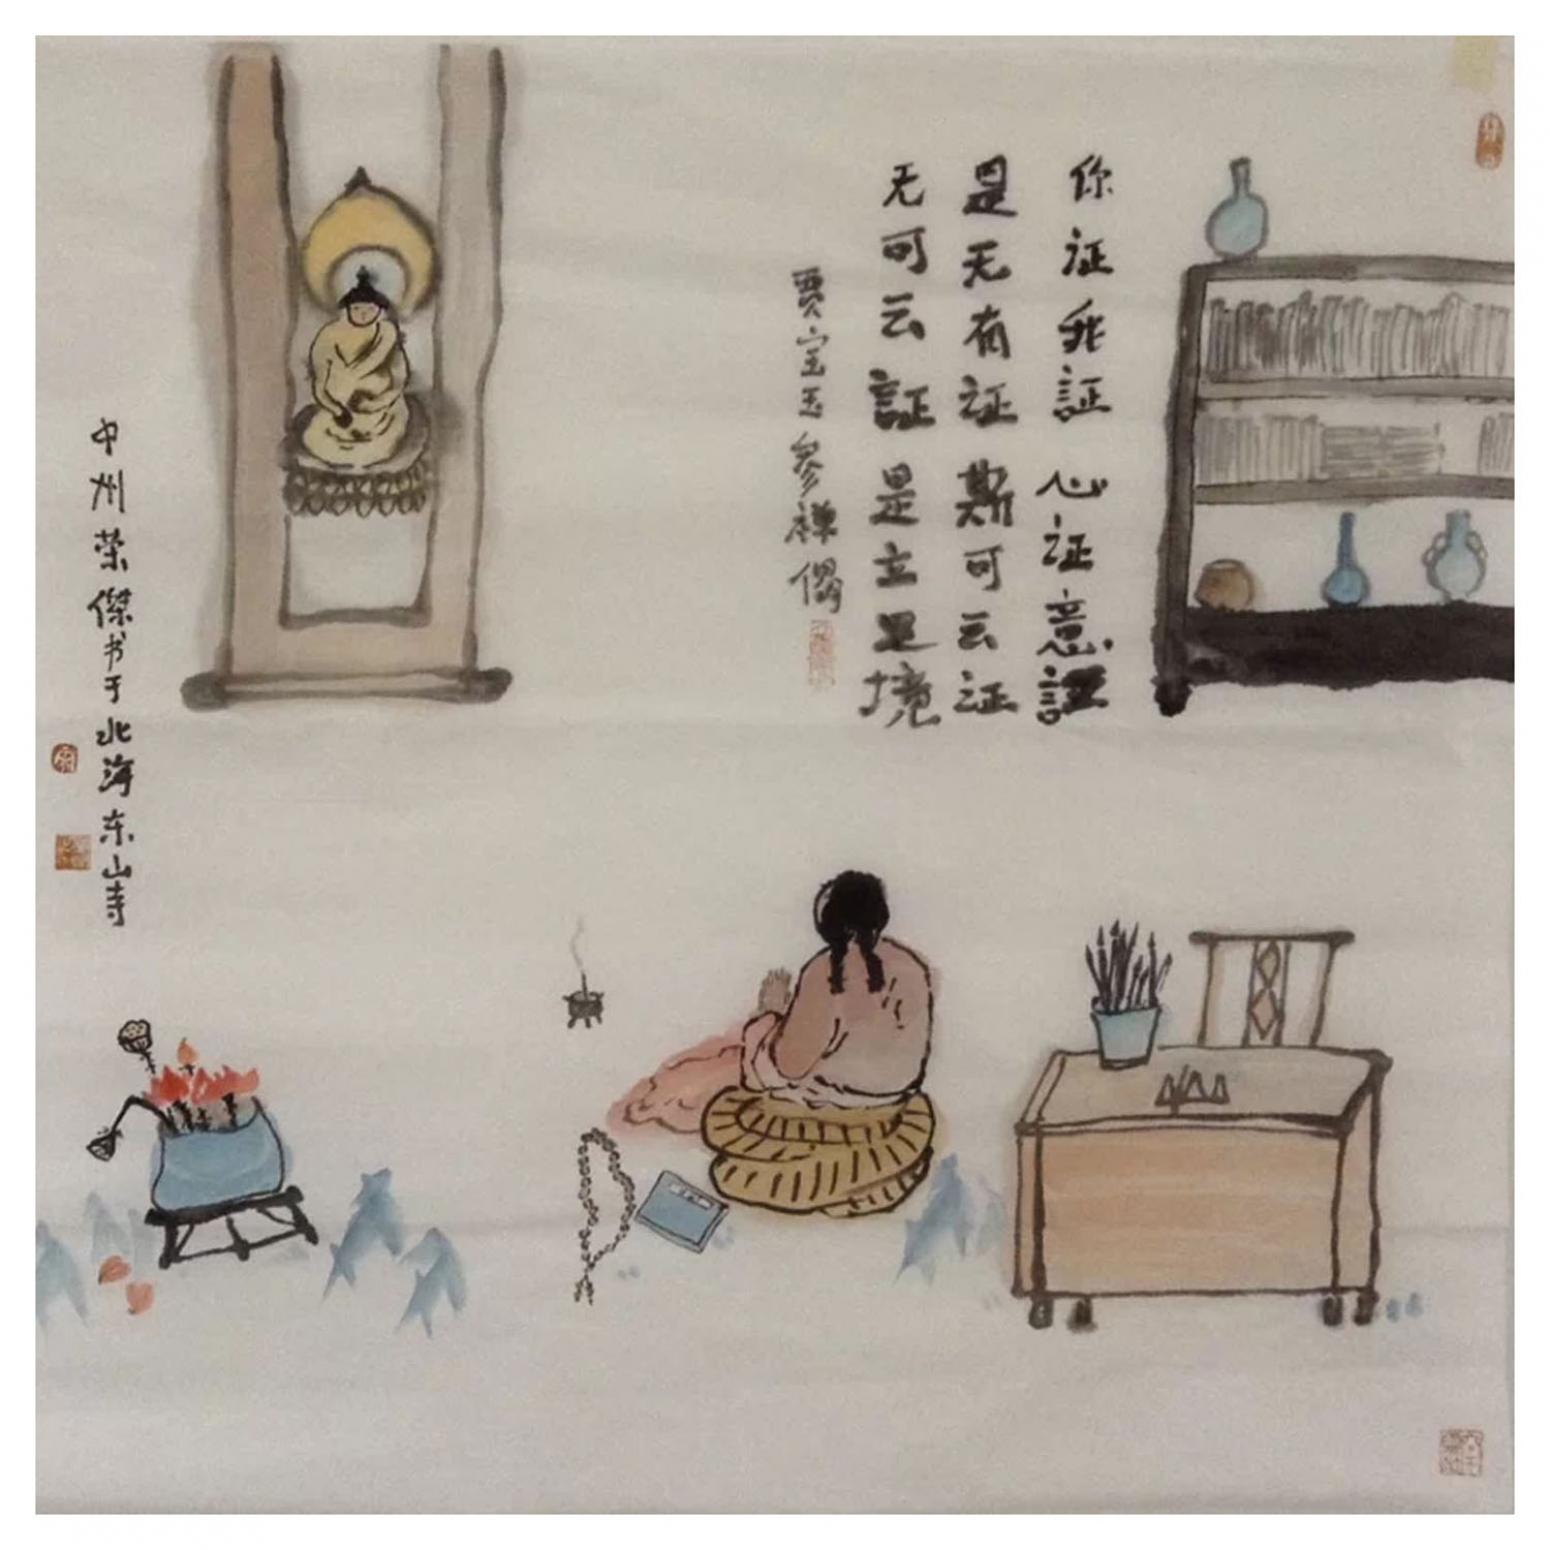 你证我証心证意証
是无有证斯可云证
无可云証是立足境
贾宝玉参禅偈
中州荣傑书于北海东山寺